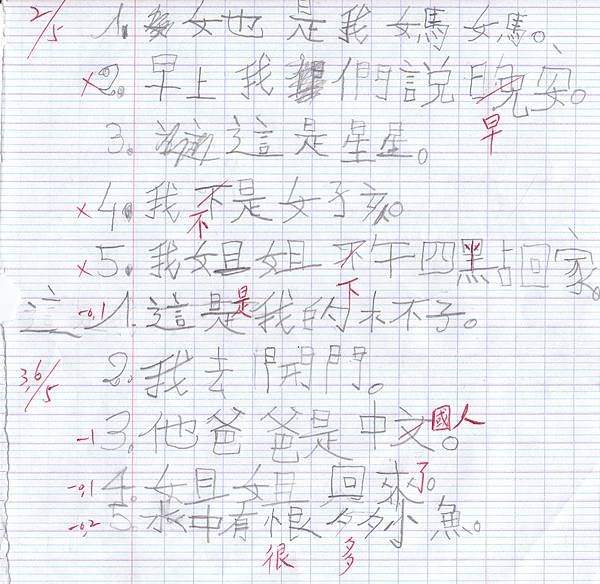 2/5 1. 她也是我媽媽。
x2. 早上我們說晚安。
早
3. 這是星星。
x4. 我不是女孩。
不
x5. 我姐姐不午四點回家。
下
這 -0,1 1. 這是我的杯子。
是
2. 我去開門。
3,6/5
-1 3. 他爸爸是中文國人。
-0,1 4. 姐姐回來了。
-0,2 5. 水中有恨多小魚。
很 多